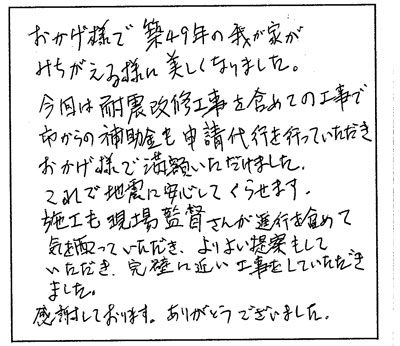 おかげ様で築49年の我が家が
みちがえる様に美しくなりました。
今回は耐震改修工事を含めての工事で
市からの補助金も申請代行を行っていただき
おかげ様で満額いただけました。
これで地震に安心してくらせます。
施工も現場監督さんが進行を含めて
気を配っていただき、よりよい提案もして
いただき、完璧に近い工事をしていただき
ました。
感謝しております。ありがとうございました。